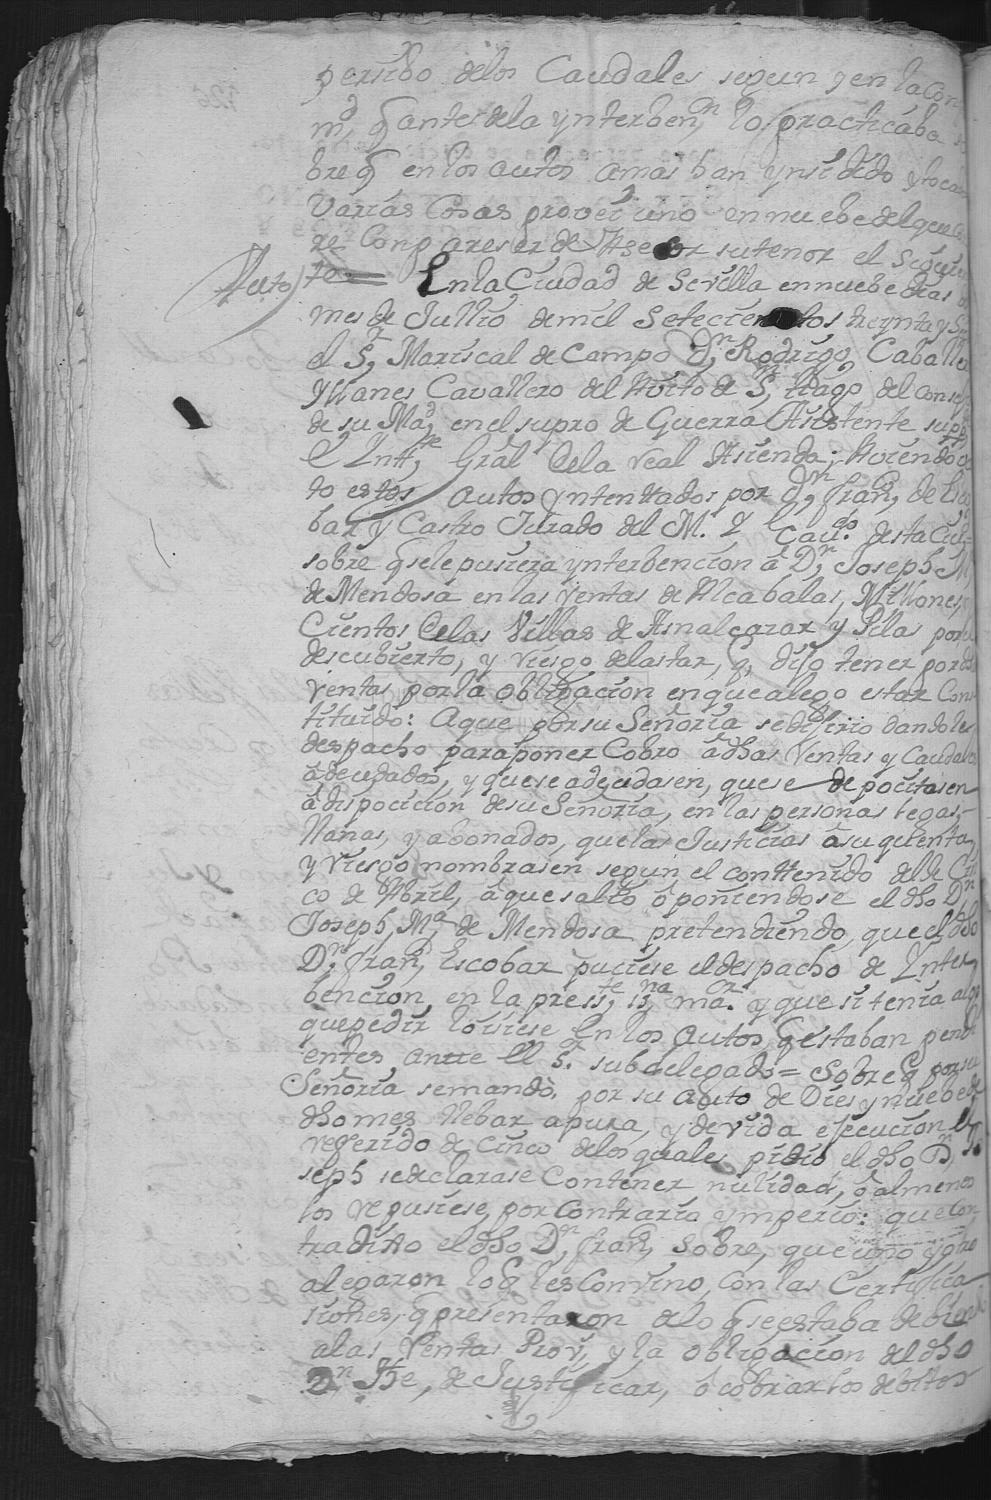 persibo delos Caudales segun y en la Con
md, q antes dela ynterbenn, lo practicaba so
bre q en los autos amas han ynsidido y tocado
Varias Cosas provei uno en nuebe del que co
rre Con pareser de Asesor su tenor el Siguien
te = En la Ciudad de Sevilla en nuebe dias
Auto
mes de Jullio de mil Setecientos treynta y
el Sr, Mariscal de Campo Dn, Rodrigo Caballero
Yllanes Cavallero del Avito de Sn, tiago del consejo
de su Mad, en el supro de Guerra Asistente
e Intte, Gral dela real Asienda; Aviendo
to estos autos yntentados por Dn, Franco, de Esco
bar y Castro Jurado del M. Y Caudo. desta Ciu
sobre q se le pusiera ynterbencion â Dn, Joseph M
de Mendosa en las rentas de Alcabalas, Millones,
Cientos delas Villas de Asnalcazar y Pilas por el
descubierto, y riesgo de lastar, q, dijo tener por dhas
rentas por la obligacion en que alego estar Cons
tituido: Aque por su Señoria se difirio dandoles
despacho para poner Cobro â dhas Rentas y Caudales
âdeudados, y que se adeudasen, que se depocitasen
â dispocicion de su Señoria, en las personas legas,
llanas, y abonados, que las Justicias â su quenta,
y riesgo nombrasen segun el conttenido del de Cin
co de Abril, â que salio ôponiendose el dho Dn
Joseph, Ma de Mendosa pretendiendo, que el dho
Dn, Fran, Escobar puciese el despacho de Inter
bencion, en la presste, Esna, maor. y que si tenia algo
que pedir lo isiese En los autos, q estaban pendi
entes, antte El Sr. subdelegado = Sobre q por su
Señoria se mando, por su auto de Dies y nuebe de
dho mes llebar apura, y devida ejecucion el
referido de cinco delos quales pidio el dho Dn, Jo
seph se declarase Contener nulidad, ô al menos
los repusiese, por Contrario ymperio: que con
tradijo el dho Dn, Fran, Sobre, que uno y otro
alegaron lo q les Convino, Con las Certifica
siones, q presentaron delo q se estaba debiendo
alas Rentas Prov, y la obligacion del dho
Dn, Jhe, de Justificar, ô cobrar los debitos